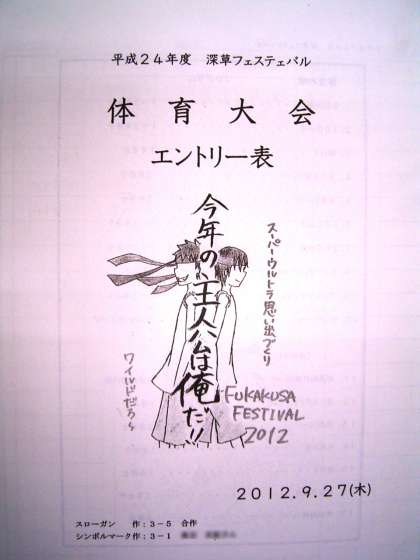 平成24年度 深草フェステェバル
体育大会
エントリー表
今年の、主人公は俺だ!!
スーパーウルトラ思い出づくり
ワイルドだろ〜
FUKAKUSA
FESTIVAL
2012
2012.9.27(木)
スローガン 作:3-5 合作
シンボルマーク作:3-1